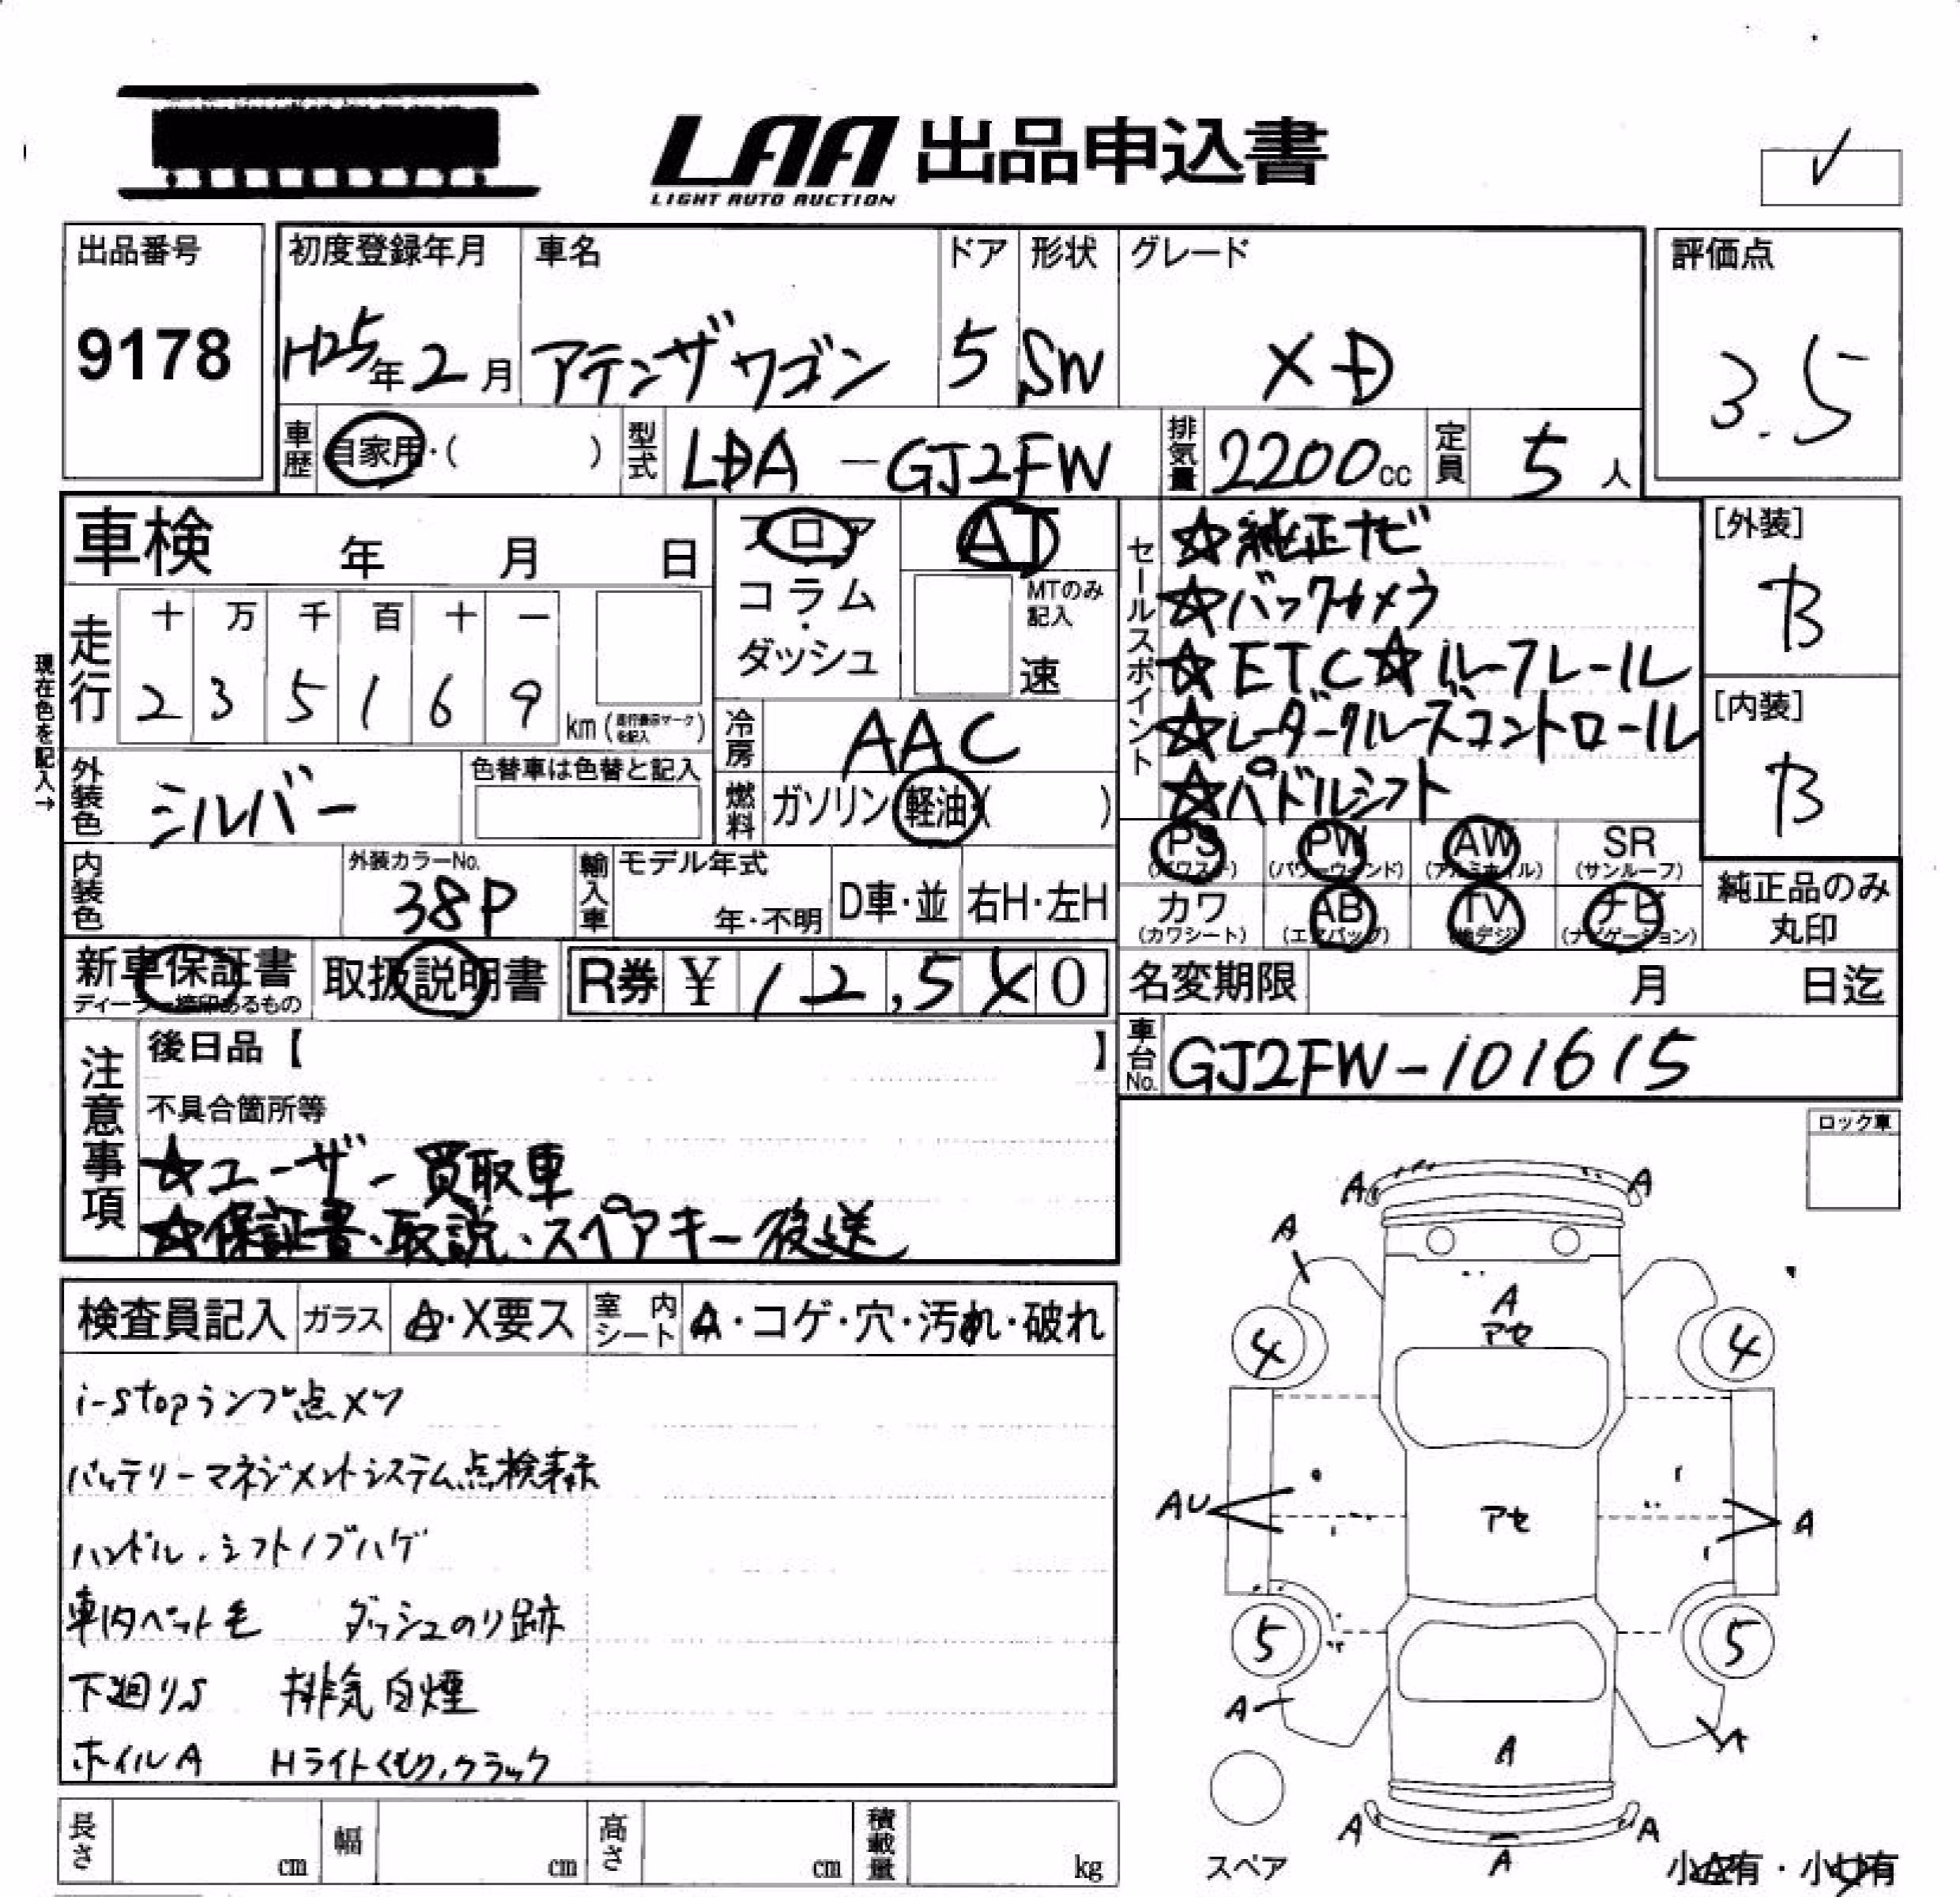 LAA 出品申込書
LIGHT AUTO AUCTION
✓
出品番号
9178
初度登録年月
H25年2月
車名
アテンザワゴン
ドア
5
形状
SW
グレード
XD
評価点
3.5
車歴
自家用・( )
型式
LDA-GJ2FW
排気量
2200cc
定員
5人
車検 年 月 日
フロア
コラム
・
ダッシュ
AT
MTのみ
記入
速
セールスポイント
☆純正ナビ
☆バックカメラ
☆ETC☆ルーフレール
☆レーダークルーズコントロール
☆パドルシフト
[外装]
B
[内装]
B
現在色を記入→
走行
十 万 千 百 十 一
2 3 5 1 6 9
km (走行表示マークを記入)
冷房
AAC
外装色
シルバー
色替車は色替と記入
燃料
ガソリン・軽油・( )
PS
(パワステ)
PW
(パワーウィンド)
AW
(アルミホイル)
SR
(サンルーフ)
カワ
(カワシート)
AB
(エアバッグ)
TV
(地デジ)
ナビ
(ナビゲーション)
純正品のみ
丸印
内装色
外装カラーNo.
38P
輸入車
モデル年式
年・不明
D車・並
右H・左H
新車保証書
ディーラー捺印あるもの
取扱説明書
R券 ¥ 12,5 0
名変期限 月 日迄
車台No.
GJ2FW-101615
注意事項
後日品【 】
不具合箇所等
☆ユーザー買取車
☆保証書・取説・スペアキー後送
ロック車
検査員記入
ガラス
A・X要ス
室内シート
A・コゲ・穴・汚れ・破れ
i-stopランプ点メツ
バッテリーマネジメントシステム点検表示
ハンドル・シフトノブハゲ
車内ペット毛 ダッシュのり跡
下廻りS 排気白煙
ホイルA Hライトくもり,クラック
A A
A
A
アセ
4 4
AU アセ A
5 5
A A
A
A A
A
スペア
小A有・小U有
長さ cm
幅 cm
高さ cm
積載量 kg